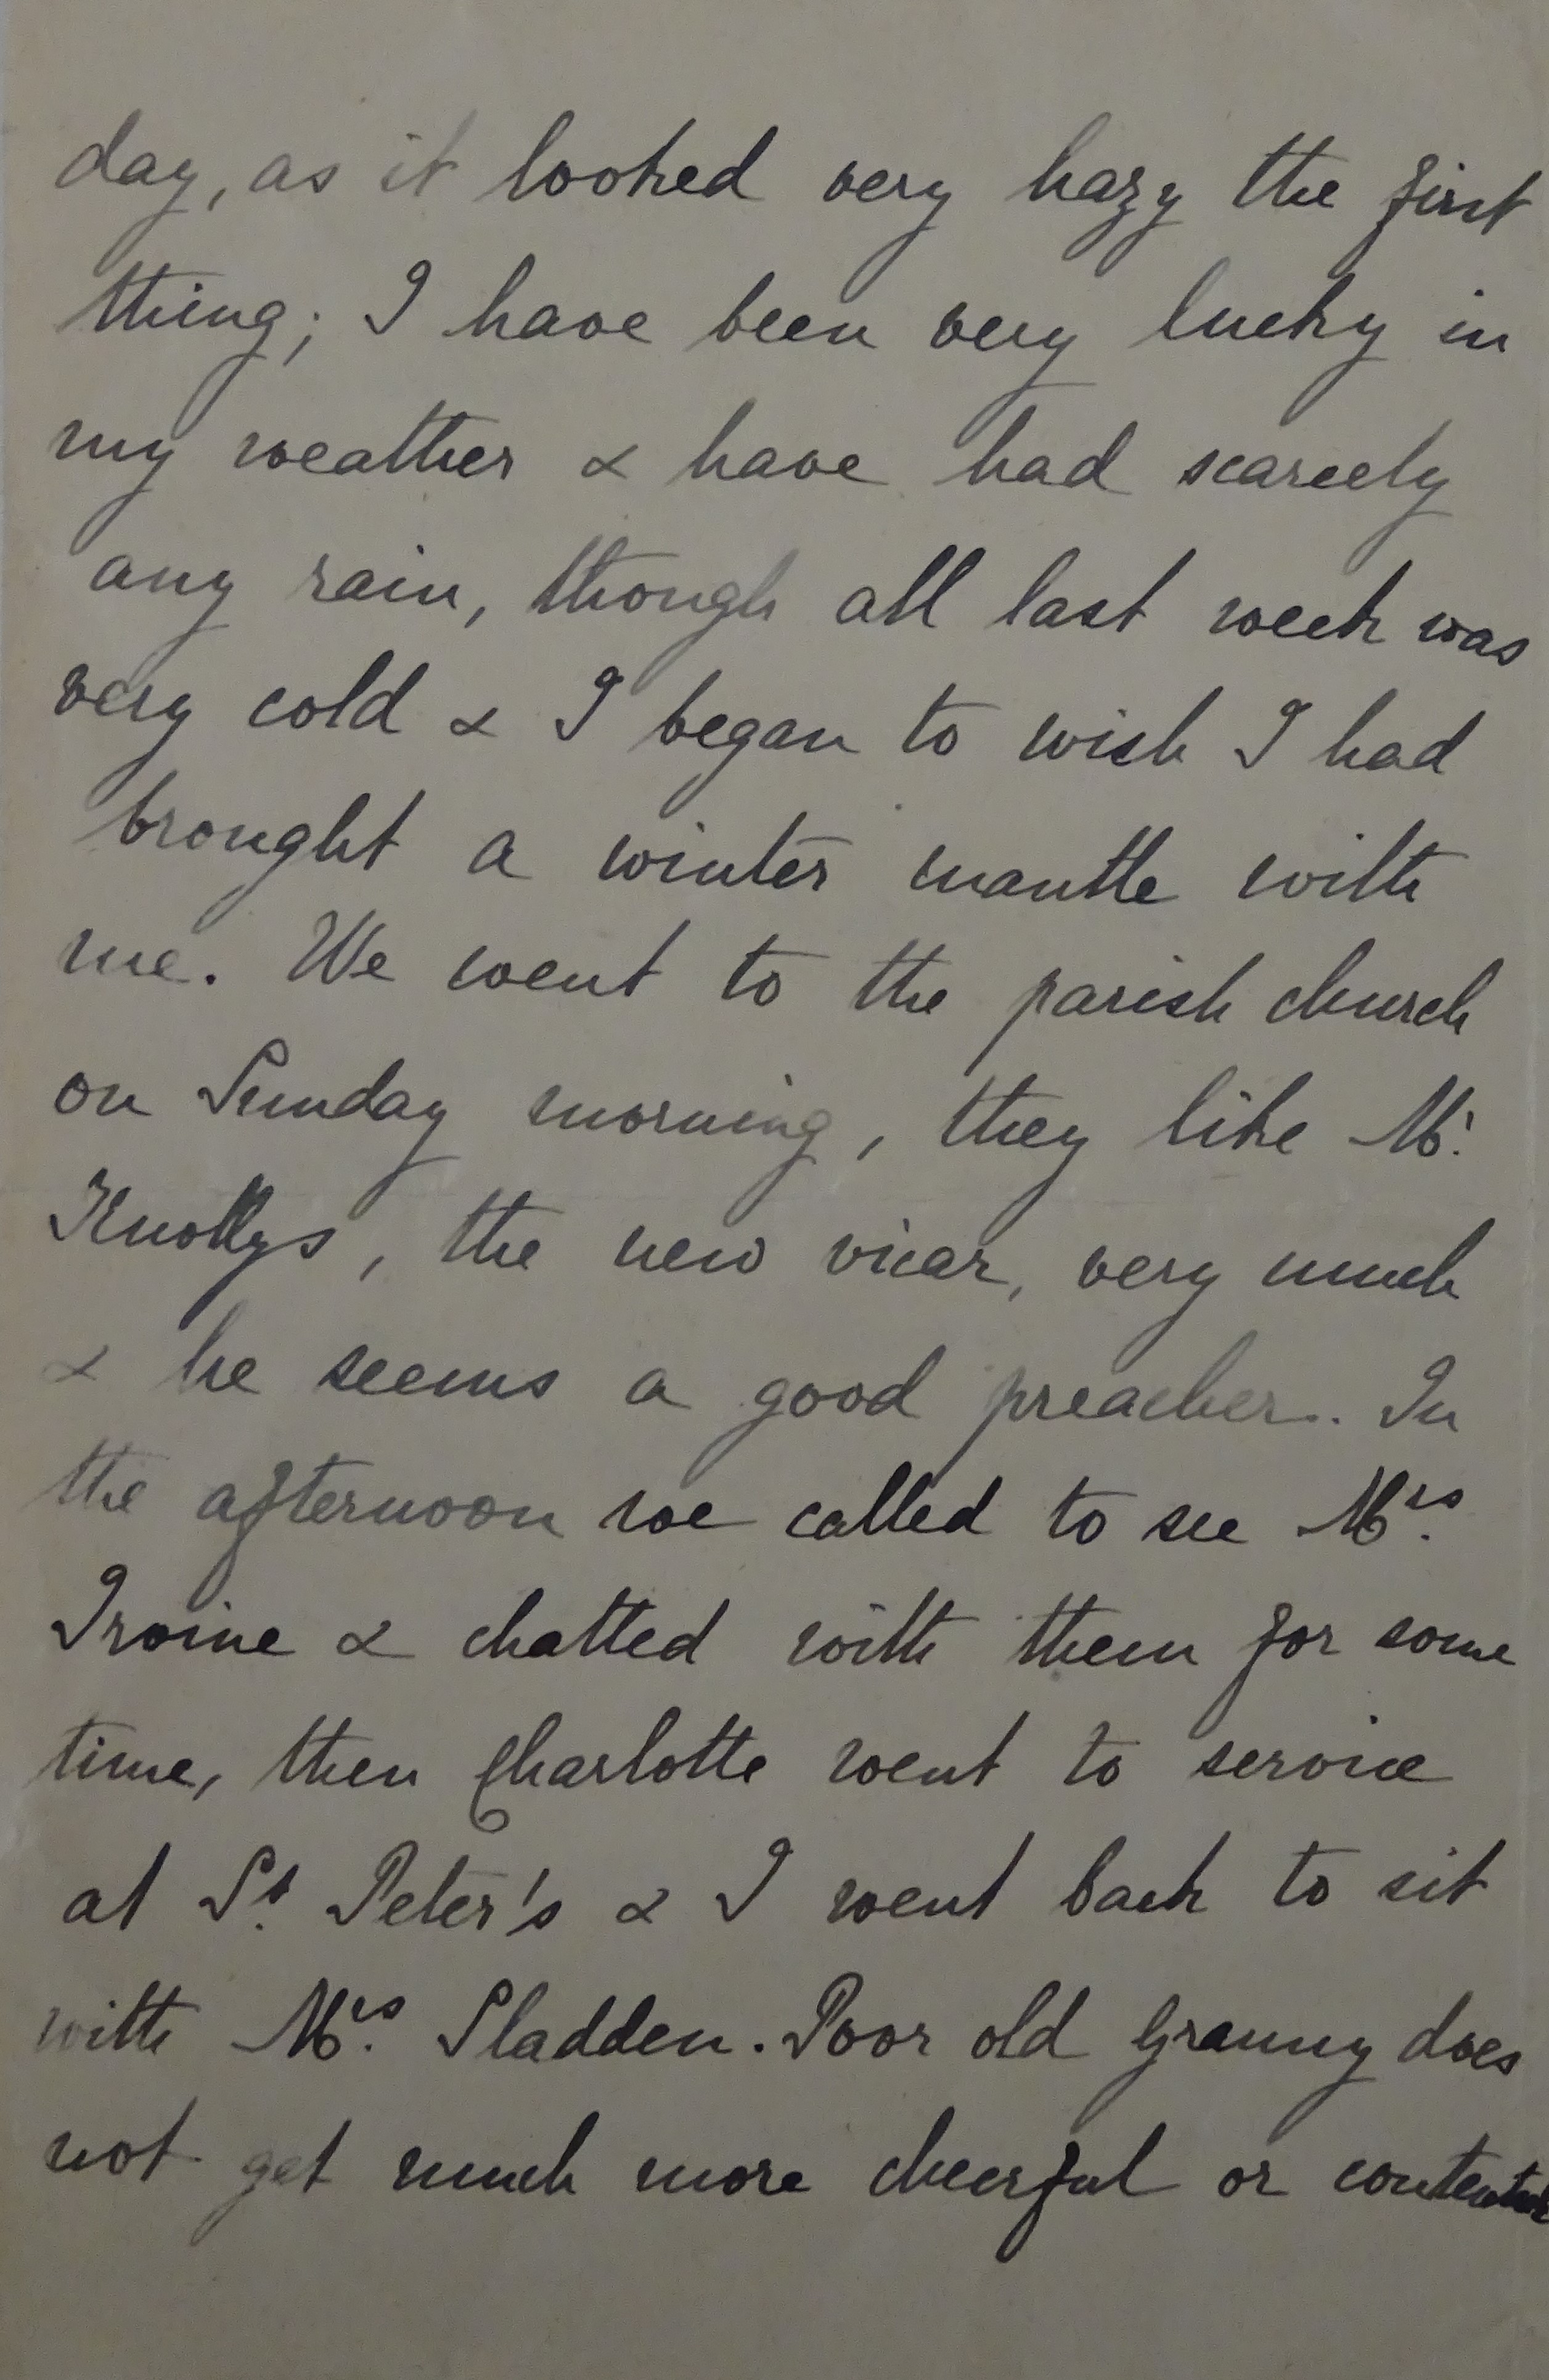 day, as it looked very hazy the first
thing; I have been very lucky in
my weather & have had scarcely
any rain, though all last week was
very cold & I began to wish I had
brought a winter mantle with
me. We went to the parish church
on Sunday morning, they like Mr.
Knollys, the new vicar, very much
& he seems a good preacher. In
the afternoon we called to see Mrs.
Irvine & chatted with them for some
time, then Charlotte went to service
at St. Peter's & I went back to sit
with Mrs. Sladden. Poor old Granny does
not get much more cheerful or contented